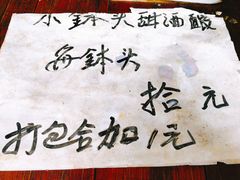 小钵头甜酒酿
每钵头
拾元
打包合加1元